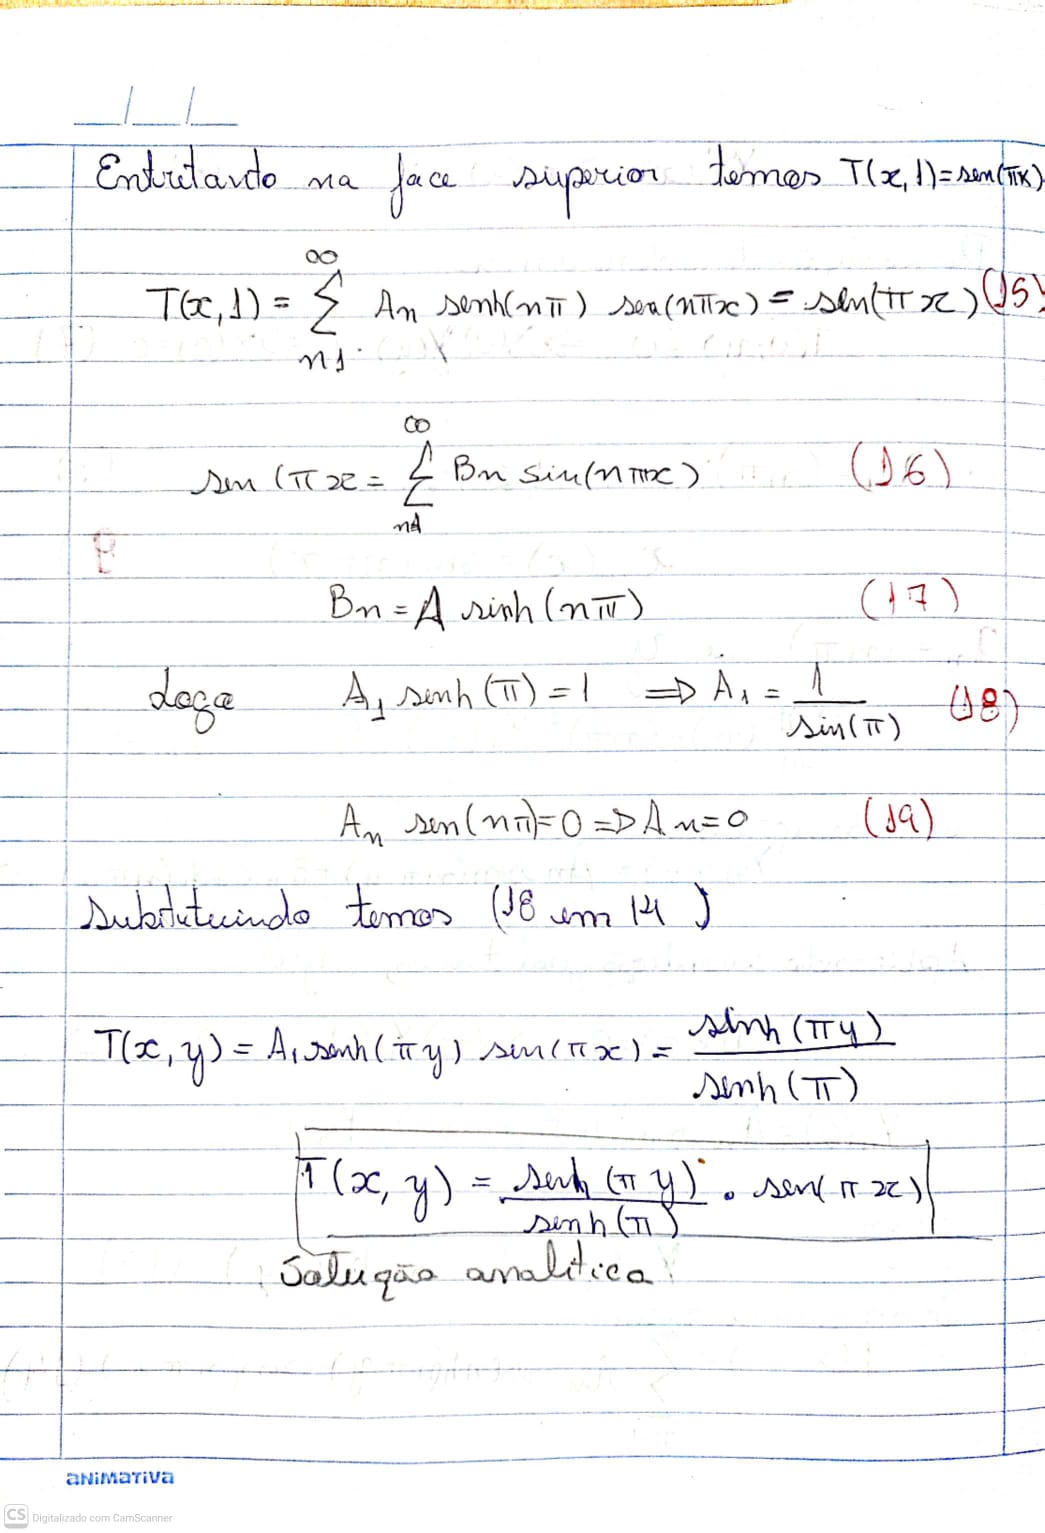 Entretanto na face superior temos T(x,1)=sen(πx)
T(x,1) = ∞ Σ n1 An senh(nπ) sen(nπx) = sen(πx) (15)
sen (πx = ∞ Σ n1 Bn sin(nπx) (16)
Bn = A sinh(nπ) (17)
Logo A1 senh(π) = 1 => A1 = 1/sin(π) (18)
An sen(nπ)=0 => An=0 (19)
Substituindo temos (18 em 14)
T(x,y) = A1 senh(πy) sen(πx) = sinh(πy)/senh(π)
T(x,y) = senh(πy)/senh(π) · sen(πx)
Solução analítica
aNiMaTiVa
CS Digitalizado com CamScanner